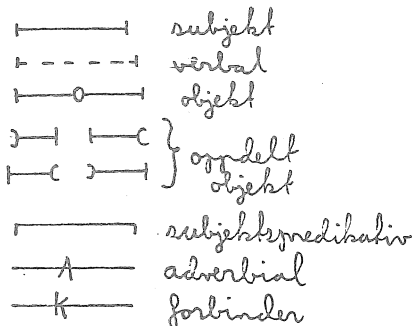 subjekt
verbal
objekt
oppdelt
objekt
subjektspredikativ
A adverbial
K forbinder